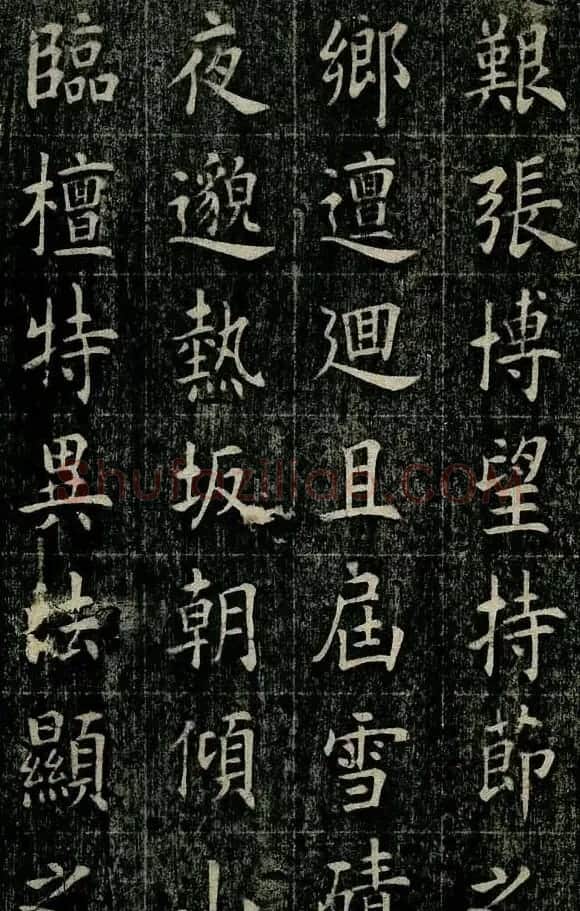 艱張博望持節之
鄉邅迴且屆雪磧
夜邈熱坂朝傾
臨檀特異法顯之
Shufaziliao.COM